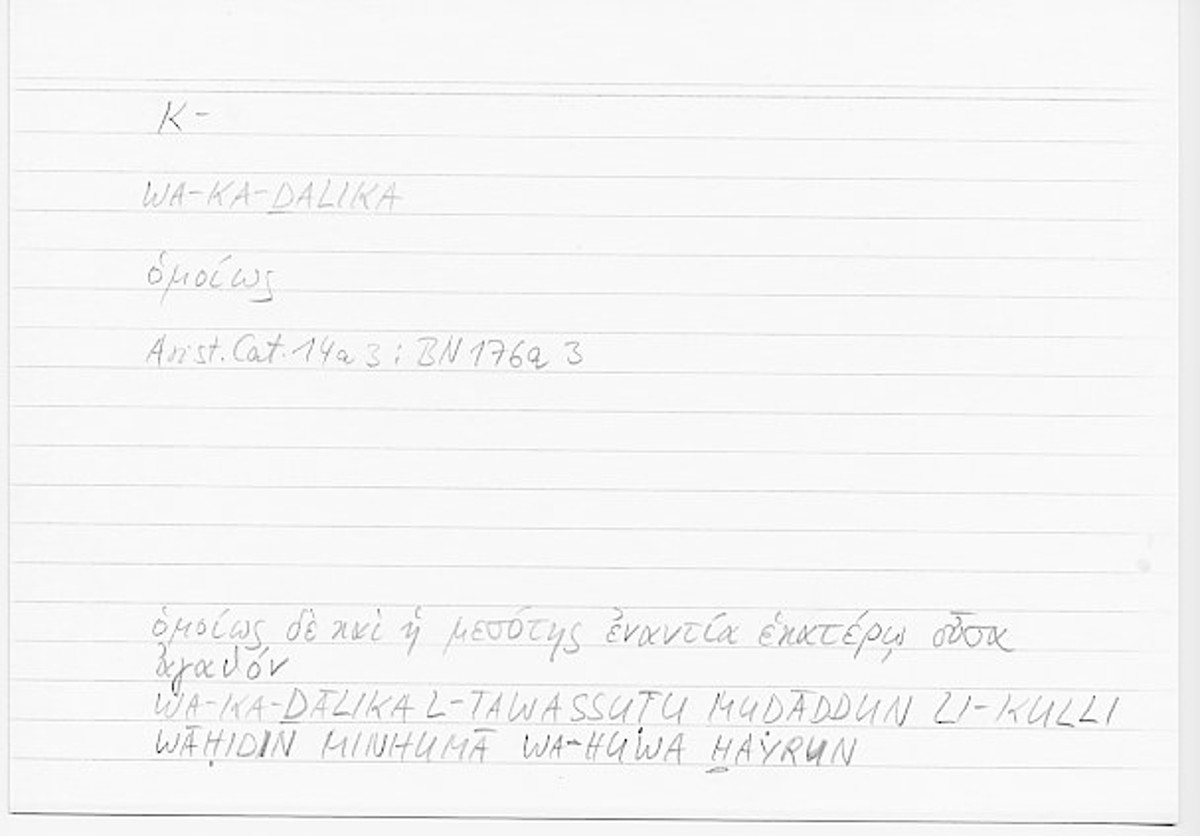 K-
WA-KA-ḎALIKA
ὁμοίως
Arist. Cat. 14a 3 : BN 176a 3
ὁμοίως δὲ καὶ ἡ μεσότης ἐναντία ἑκατέρῳ οὖσα
ἀγαθόν
WA-KA-ḎALIKA L-TAWASSUṬU MUḌĀDDUN LI-KULLI
WĀḤIDIN MINHUMĀ WA-HUWA ḪAYRUN